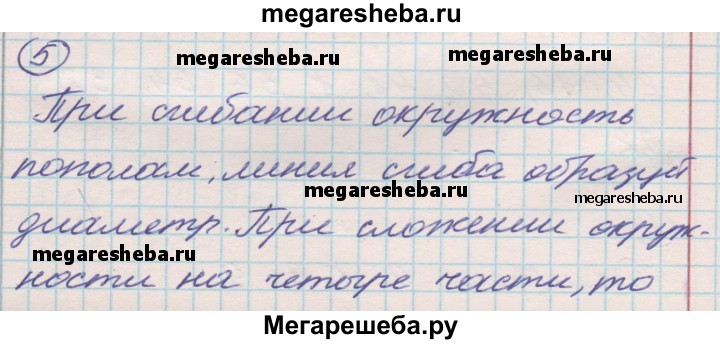 megaresheba.ru
5
megaresheba.ru
При сгибании окружность
пополам, линия сгиба образуй
megaresheba.ru
megaresheba.ru
диаметр. При сложении окруж-
megaresheba.ru
ности на четыре части, то
Мегарешеба.ру